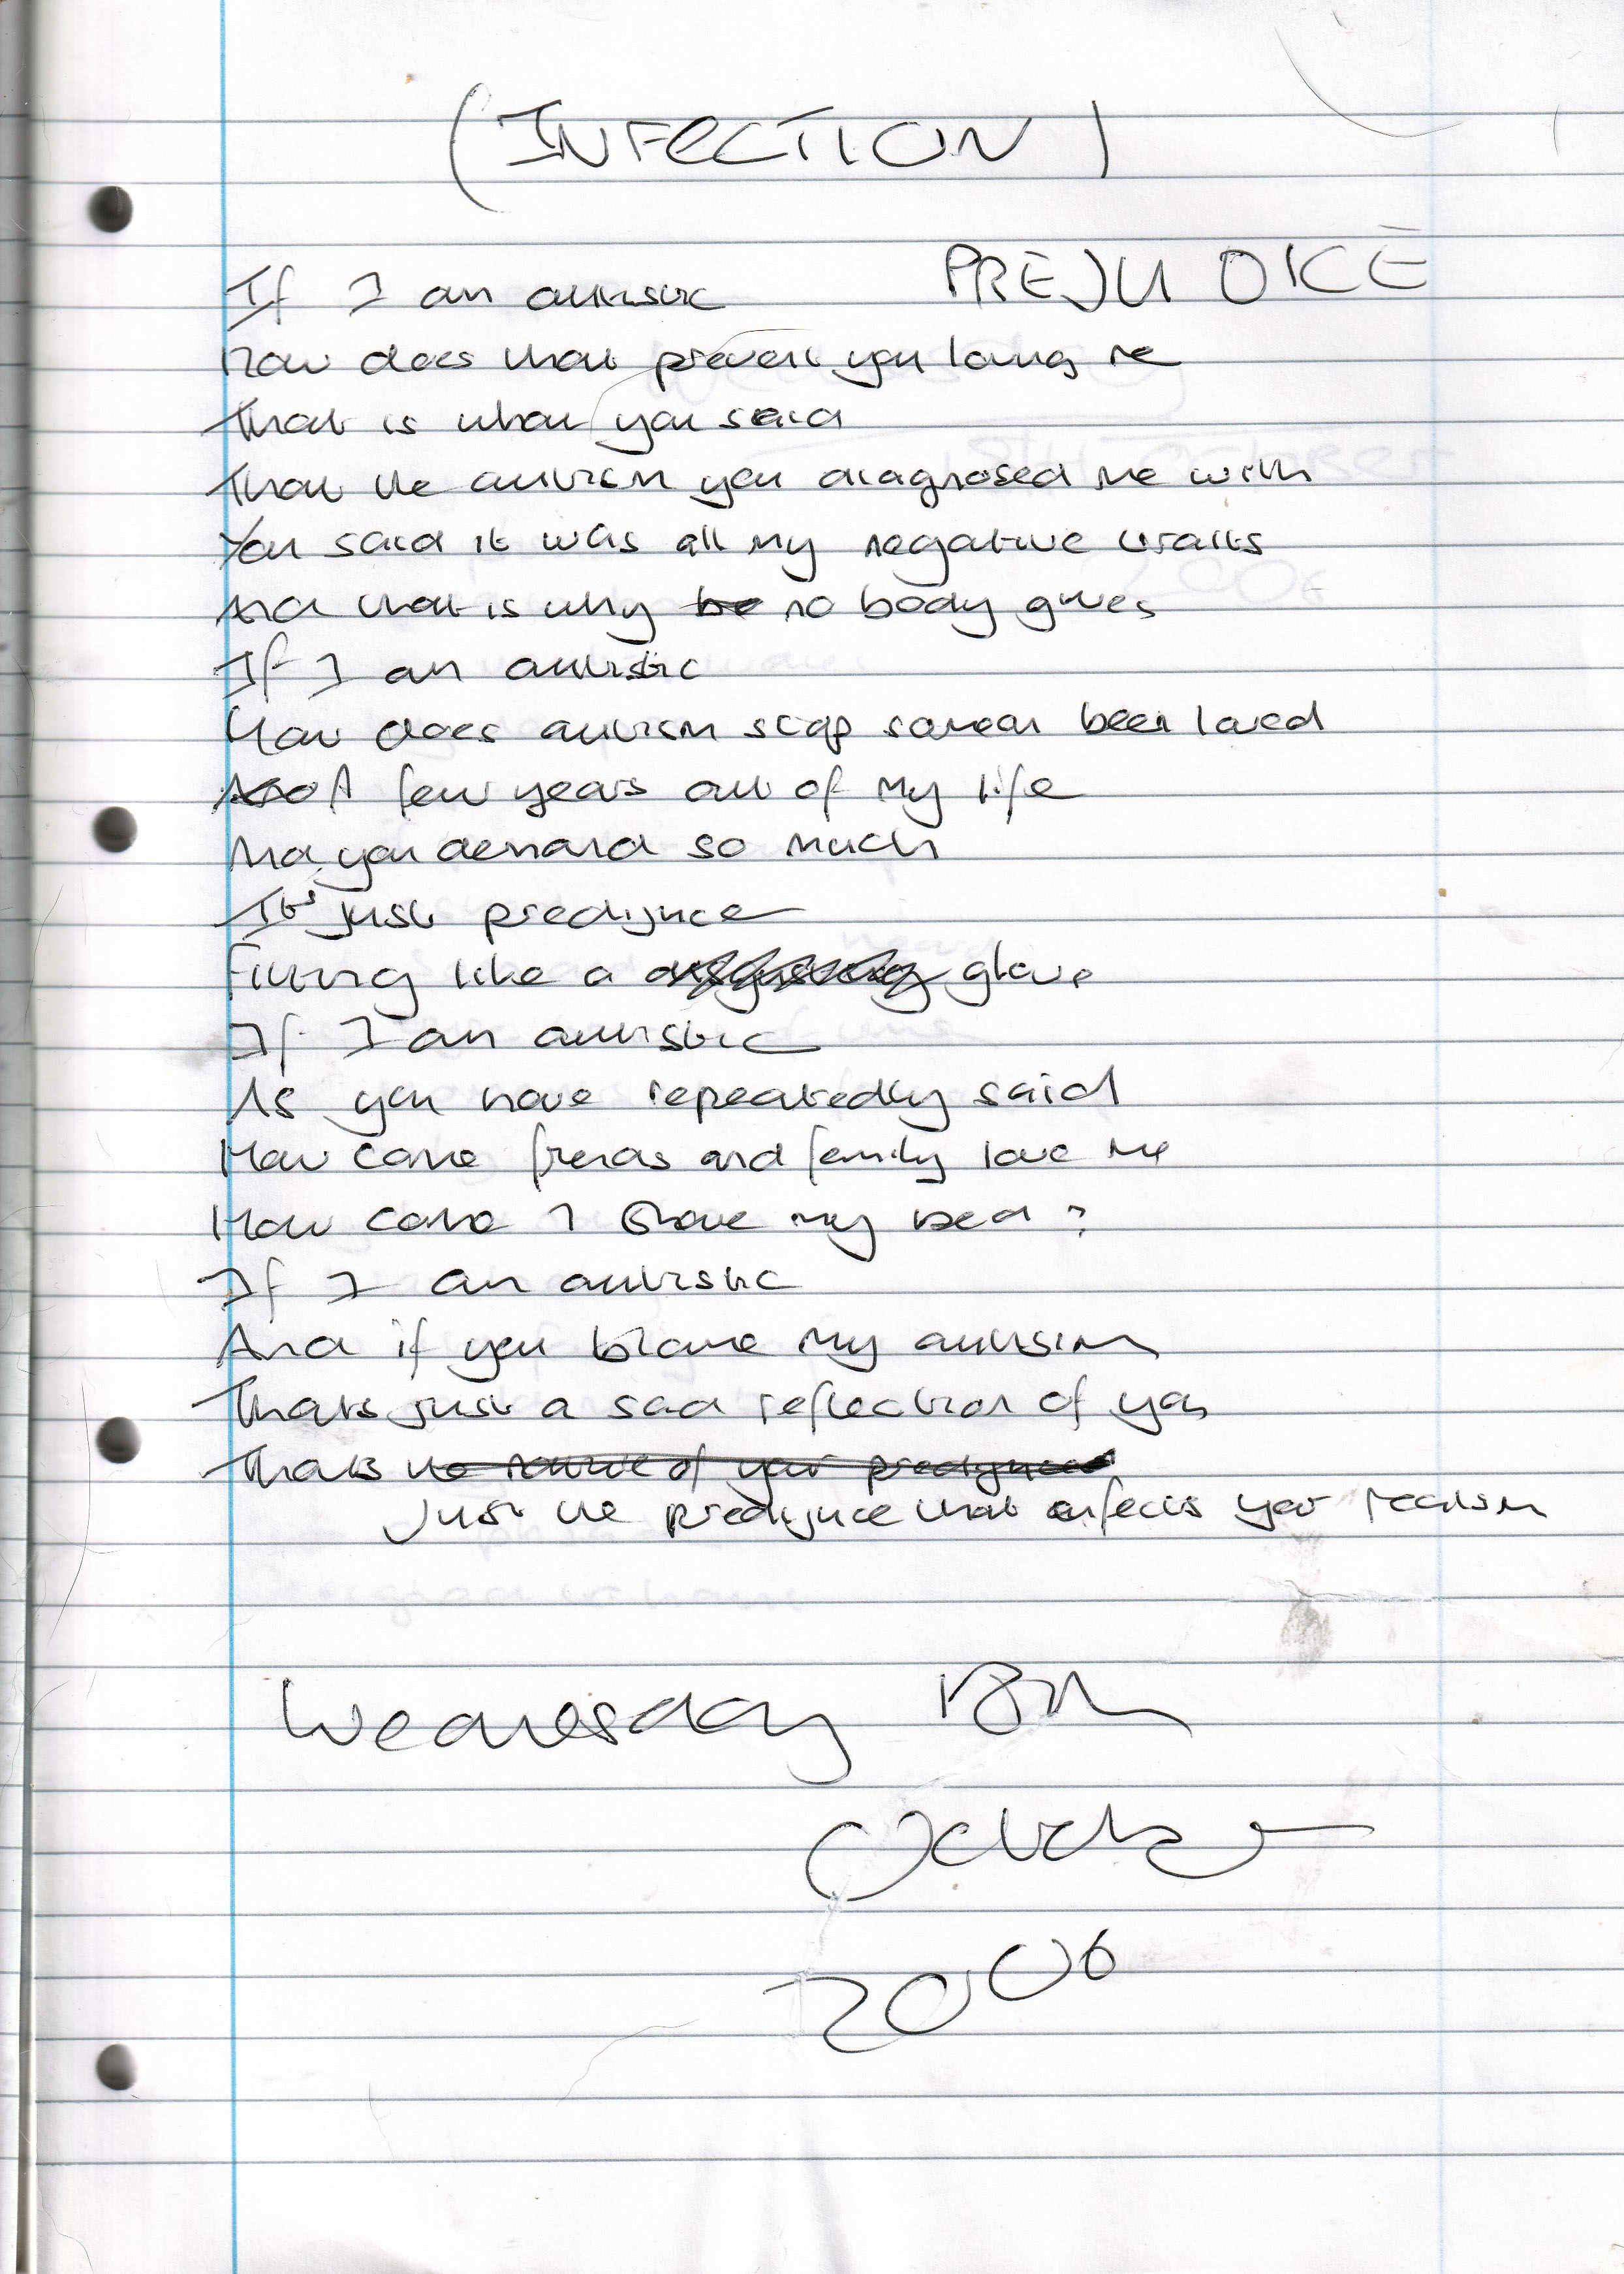 (INFECTION)
PREJUDICE
If I am autistic
How does that prevent you loving me
That is what you said
That the autism you diagnosed me with
You said it was all my negative traits
And that is why be no body gives
If I am autistic
How does autism stop someone been loved
A few years out of my life
And you demand so much
It's just predijuce
Fitting like a disgusting glove
If I am autistic
As you have repeatedly said
How come friends and family love me
How come I share my bed?
If I am autistic
And if you blame my autism
Thats just a sad reflection of you
Thats no nature of your predijuce
Just the predijuce that infects your
Wednesday 18th
October
2006